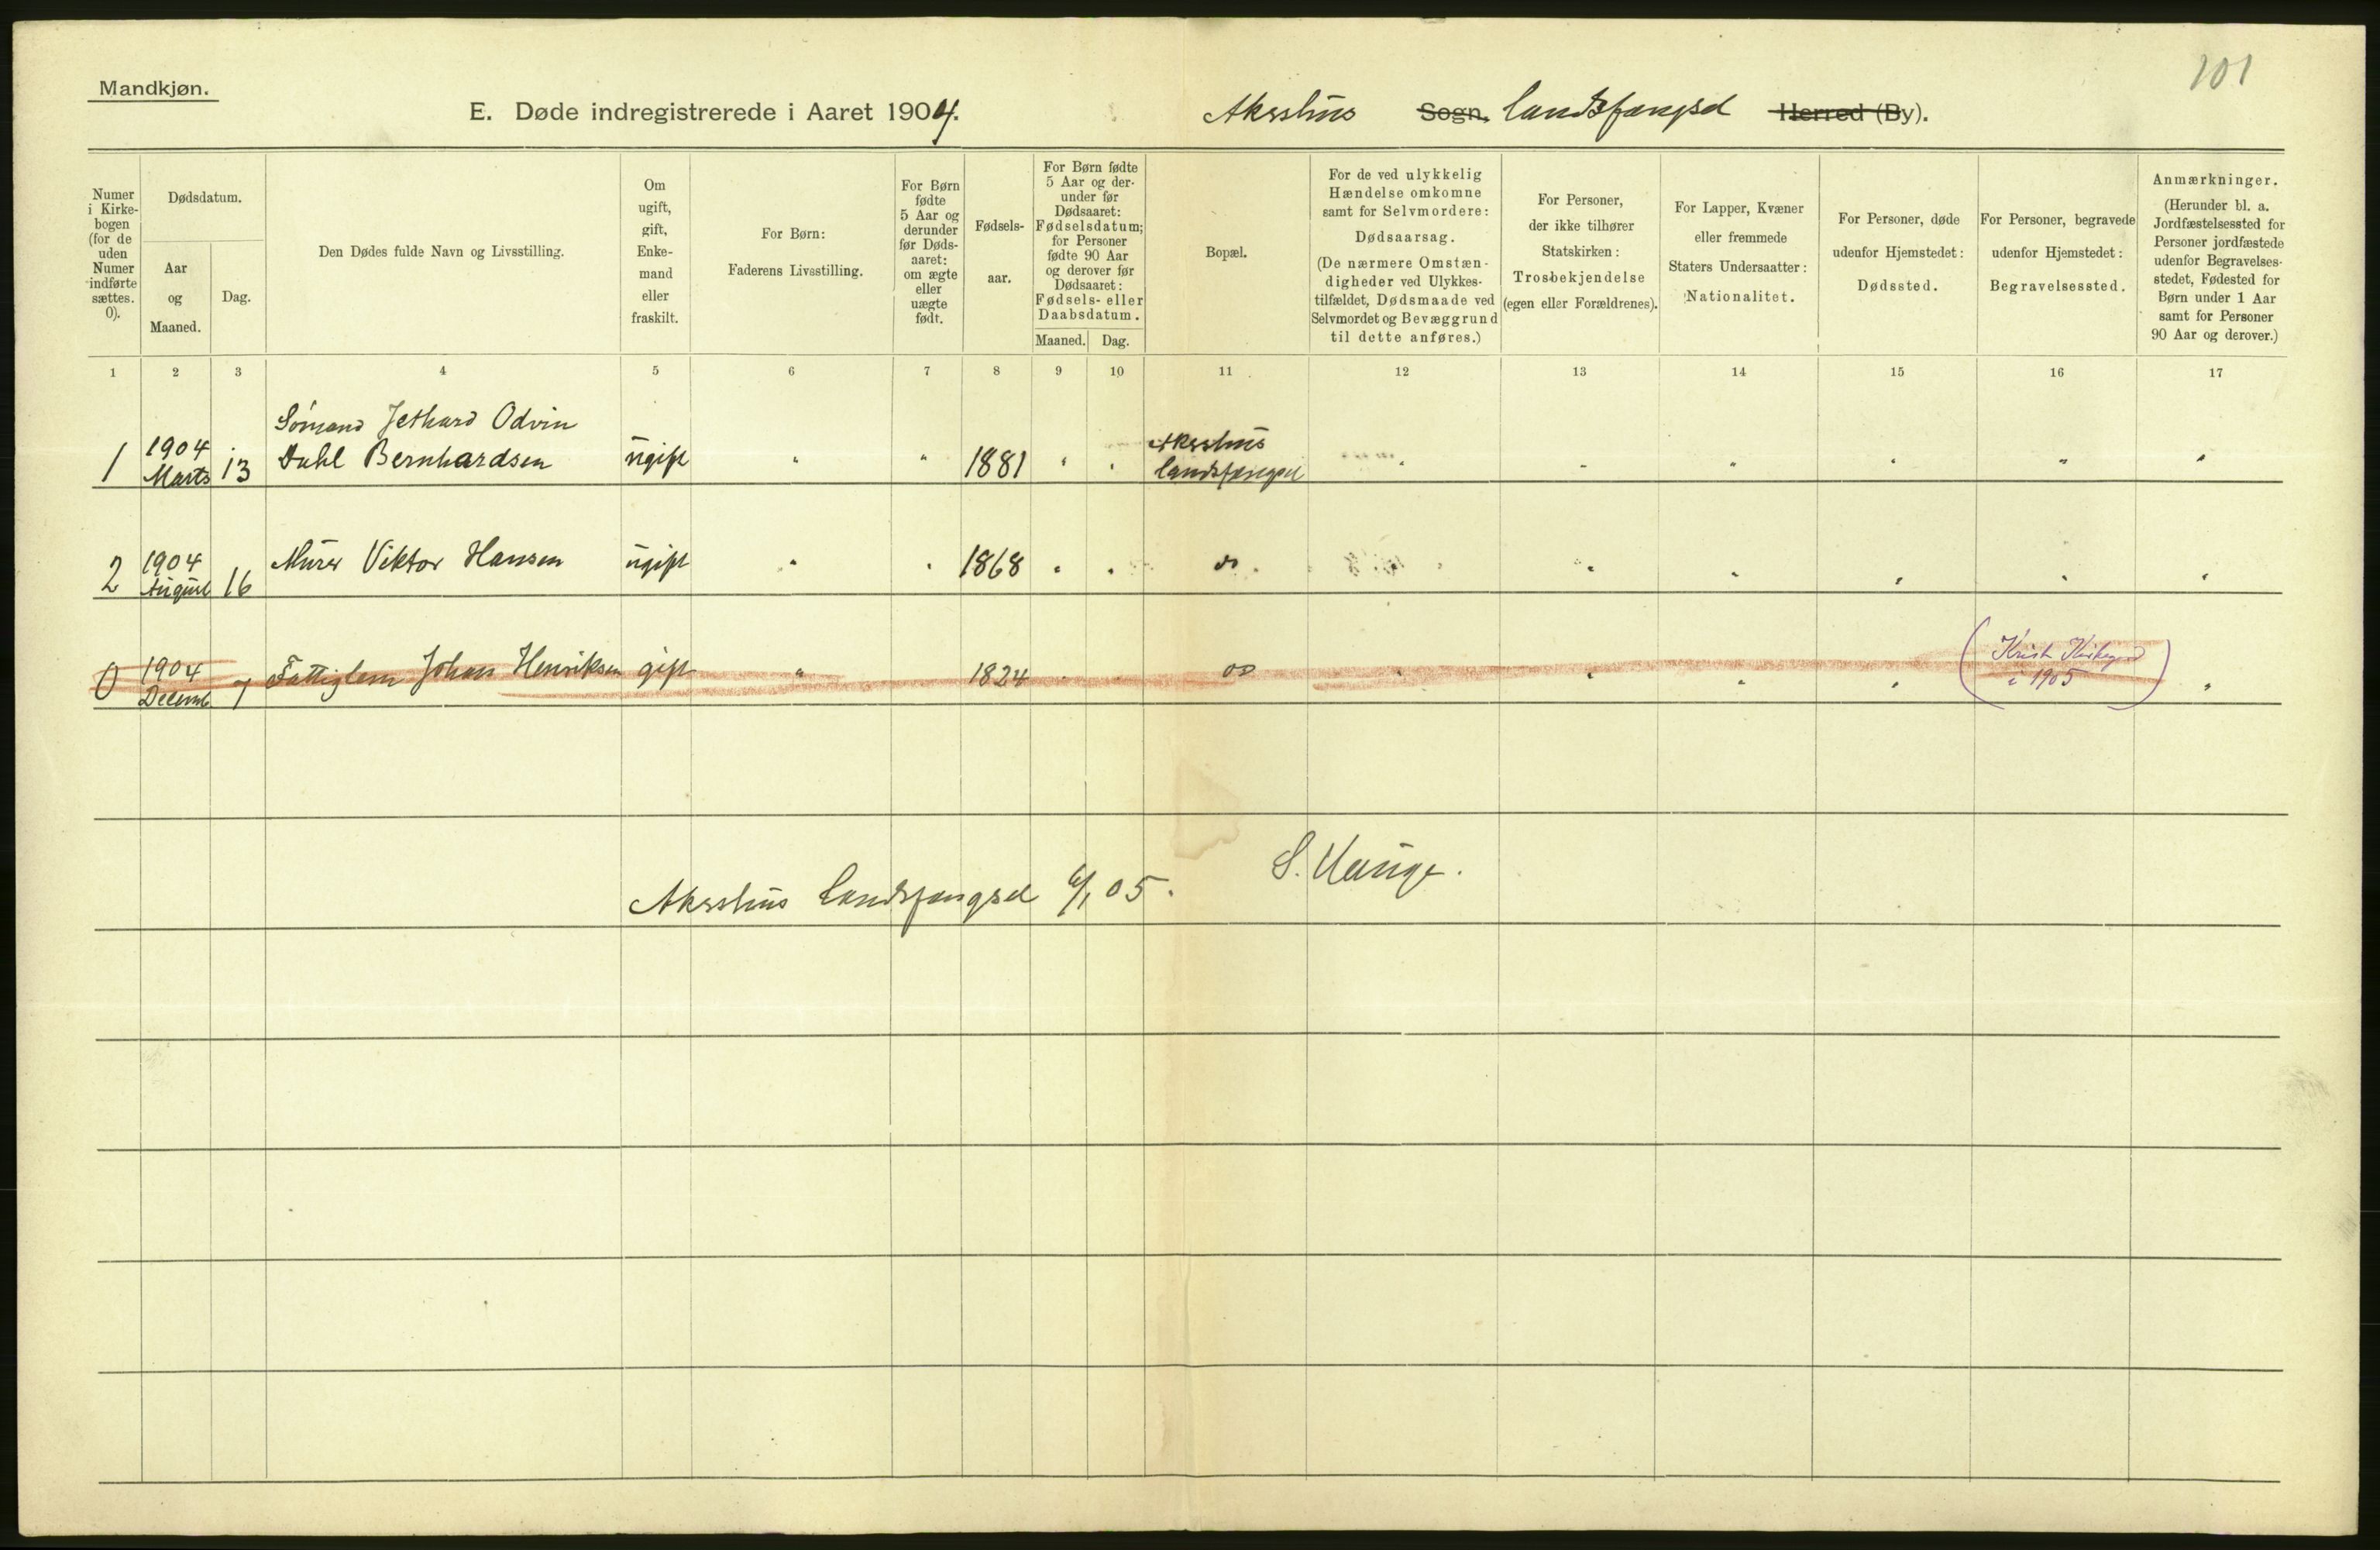 101
Mandkjøn.
E. Døde indregistrerede i Aaret 1904.
Akershus Sogn. Landsfængsel Herred (By).
Numer
i Kirke-
bogen
(for de
uden
Numer
indførte
sættes.
0).
Dødsdatum.
Aar
og
Maaned.
Dag.
Den Dødes fulde Navn og Livsstilling.
Om
ugift,
gift,
Enke-
mand
eller
fraskilt.
For Børn:
Faderens Livsstilling.
For Børn
fødte
5 Aar og
derunder
før Døds-
aaret:
om ægte
eller
uægte
født.
Fødsels-
aar.
For Børn fødte
5 Aar og der-
under før
Dødsaaret:
Fødselsdatum;
for Personer
fødte 90 Aar
og derover før
Dødsaaret:
Fødsels- eller
Daabsdatum.
Maaned. Dag.
Bopæl.
For de ved ulykkelig
Hændelse omkomne
samt for Selvmordere:
Dødsaarsag.
(De nærmere Omstæn-
digheder ved Ulykkes-
tilfældet, Dødsmaade ved
Selvmordet og Bevæggrund
til dette anføres.)
For Personer,
der ikke tilhører
Statskirken:
Trosbekjendelse
(egen eller Forældrenes).
For Lapper, Kvæner
eller fremmede
Staters Undersaatter:
Nationalitet.
For Personer, døde
udenfor Hjemstedet:
Dødssted.
For Personer, begravede
udenfor Hjemstedet:
Begravelsessted.
Anmærkninger.
(Herunder bl. a.
Jordfæstelsessted for
Personer jordfæstede
udenfor Begravelses-
stedet, Fødested for
Børn under 1 Aar
samt for Personer
90 Aar og derover.)
1 2 3 4 5 6 7 8 9 10 11 12 13 14 15 16 17
Sømand Jethard Odvin
1 1904 Marts 13 Dahl Bernhardsen ugift " " 1881 " " Akershus Landsfængsel " " " " " "
2 1904 August 16 Murer Viktor Hansen ugift " " 1868 " " do " " " " " "
0 1904 Decemb 7 Fattiglem Johan Henriksen gift " 1824 do " " " " (Krist. Kirkegrd i 1905) "
Akershus Landsfængsel 6/1 05.
S. Hauge.